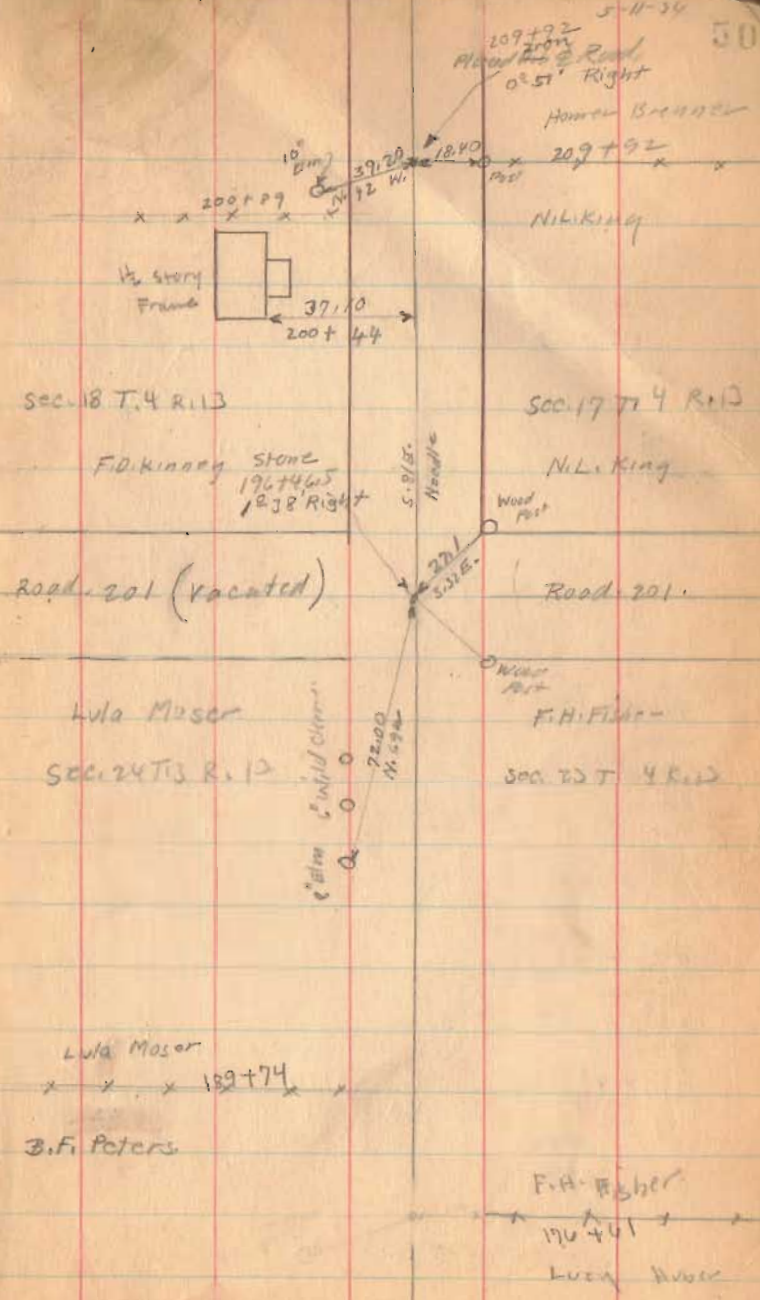 5-11-34
50
209+92
Iron
Road
0° 51' Right
Homer Brenner
10"
Elm
39.20
18.40
209+92
N. 42 W.
Post
200+89
N.L. King
1½ Story
Frame
37.10
200+44
Sec. 18 T. 4 R. 13
Sec. 17 T. 4 R. 13
F.D. Kinney
Stone
196+46.5
1° 38' Right
S. 8 E.
Needle
N.L. King
Wood
Post
27.1
S. 52 E.
Road 201 (vacated)
Road 201.
Wood
Post
Lula Moser
F.H. Fisher
72.00
Sec. 24 T. 3 R. 13
4 R. 13
6" Wild Cherry
6" Elm
Lula Moser
189+74
B.F. Peters
F.H. Fisher
176+61
Lucy Huber